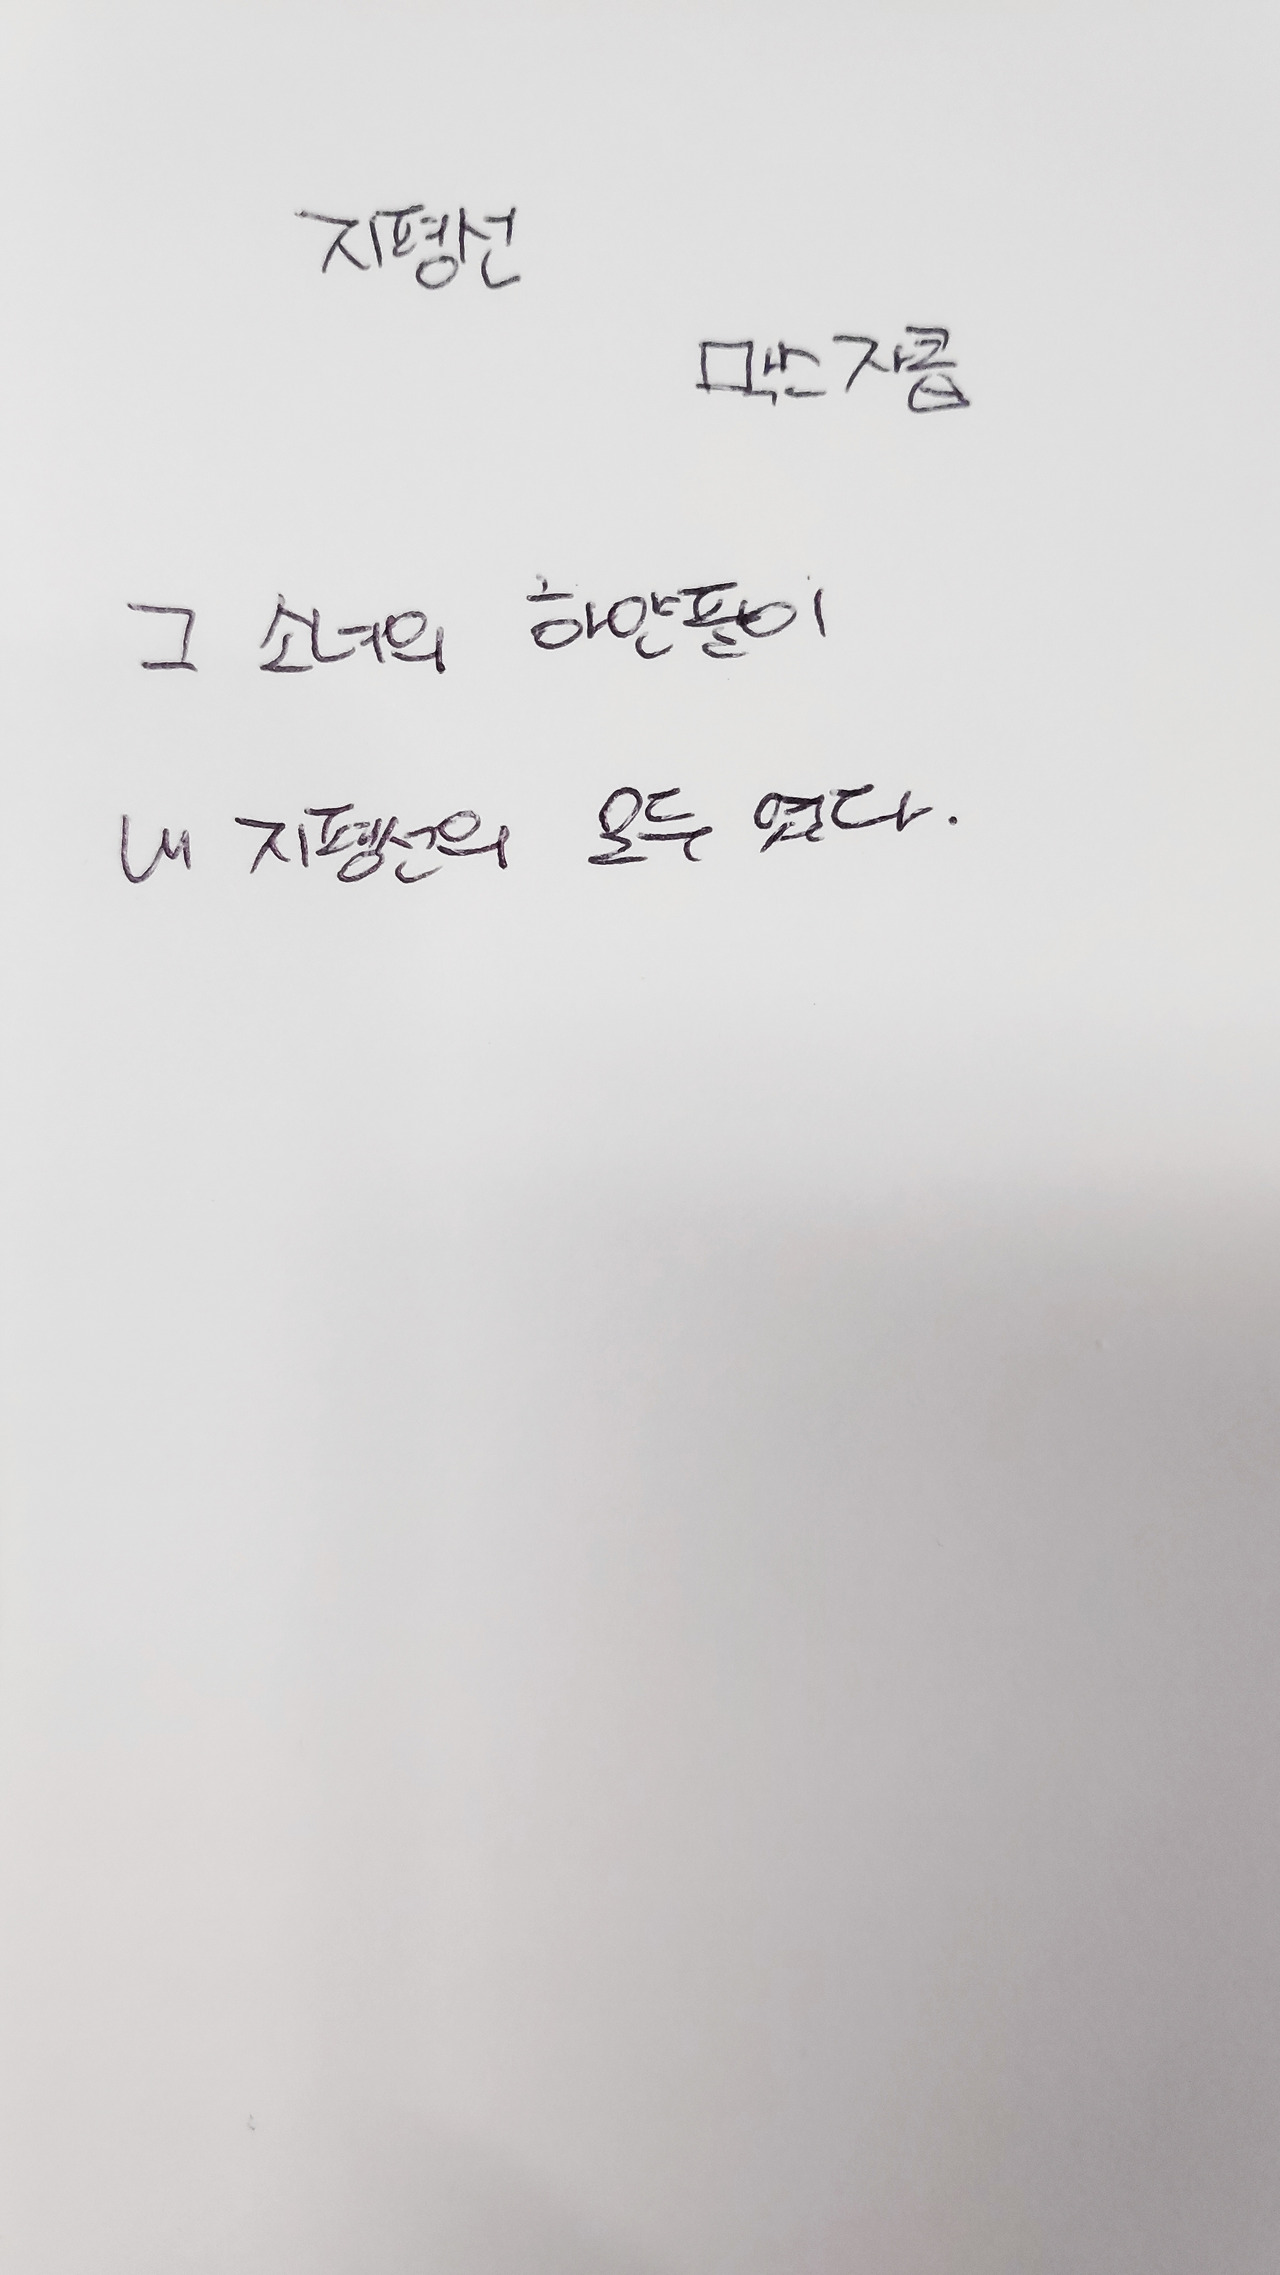 지평선
막스 자콥
그 소녀의 하얀팔이
내 지평선의 모두 였다.